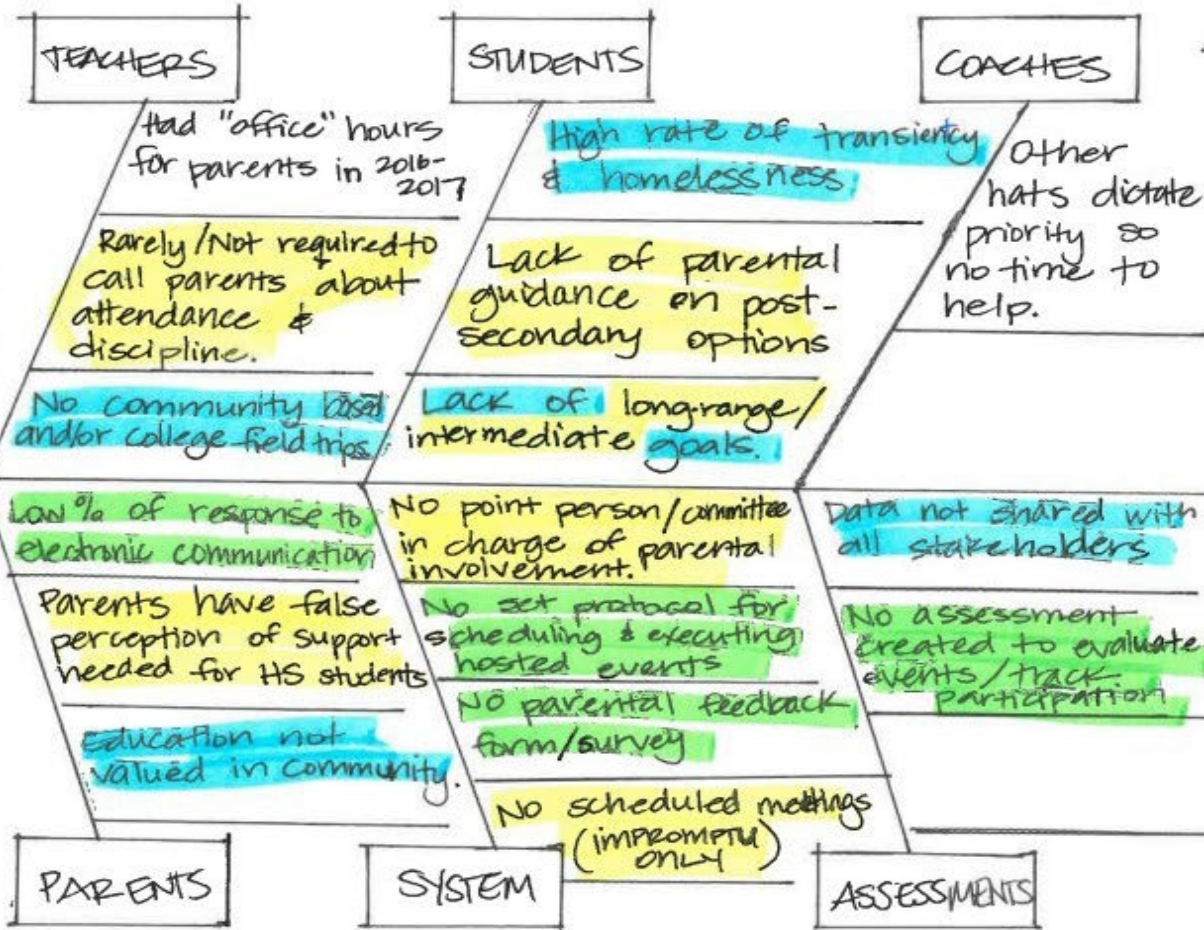 TEACHERS
Had "office" hours
for parents in 2016-
2017
Rarely/Not required to
call parents about
attendance &
discipline.
No community based
and/or college field trips
STUDENTS
High rate of transiency
& homelessness
Lack of parental
guidance on post-
secondary options
Lack of long-range/
intermediate goals.
COACHES
Other
hats dictate
priority so
no time to
help.
Low % of response to
electronic communication
Parents have false
perception of support
needed for HS students
Education not
valued in community.
PARENTS
No point person/committee
in charge of parental
involvement.
No set protocol for
scheduling & executing
hosted events
No parental feedback
form/survey
No scheduled meetings
(IMPROMPTU
ONLY)
SYSTEM
Data not shared with
all stakeholders
No assessment
created to evaluate
events/track
participation
ASSESSMENTS